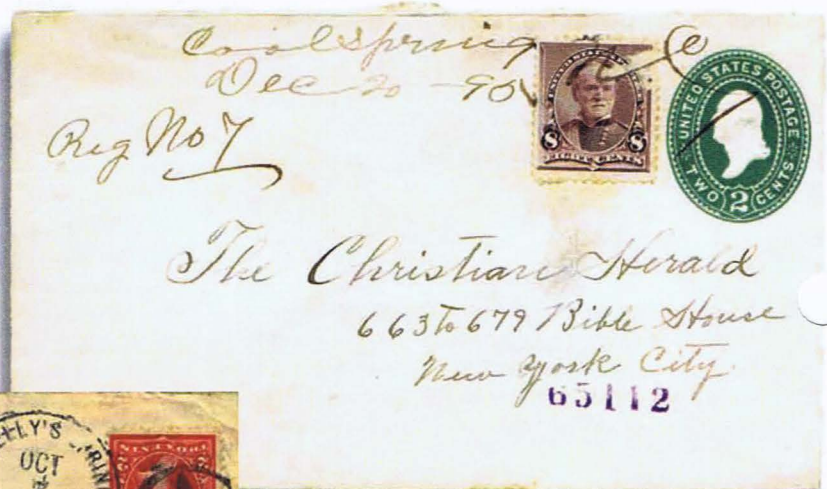 Coolspring N.C.
Dec 20 - 90
Reg No 7
8 8
EIGHT CENTS
UNITED STATES POSTAGE
TWO 2 CENTS
The Christian Herald
663 to 679 Bible House
New York City
65112
OCT